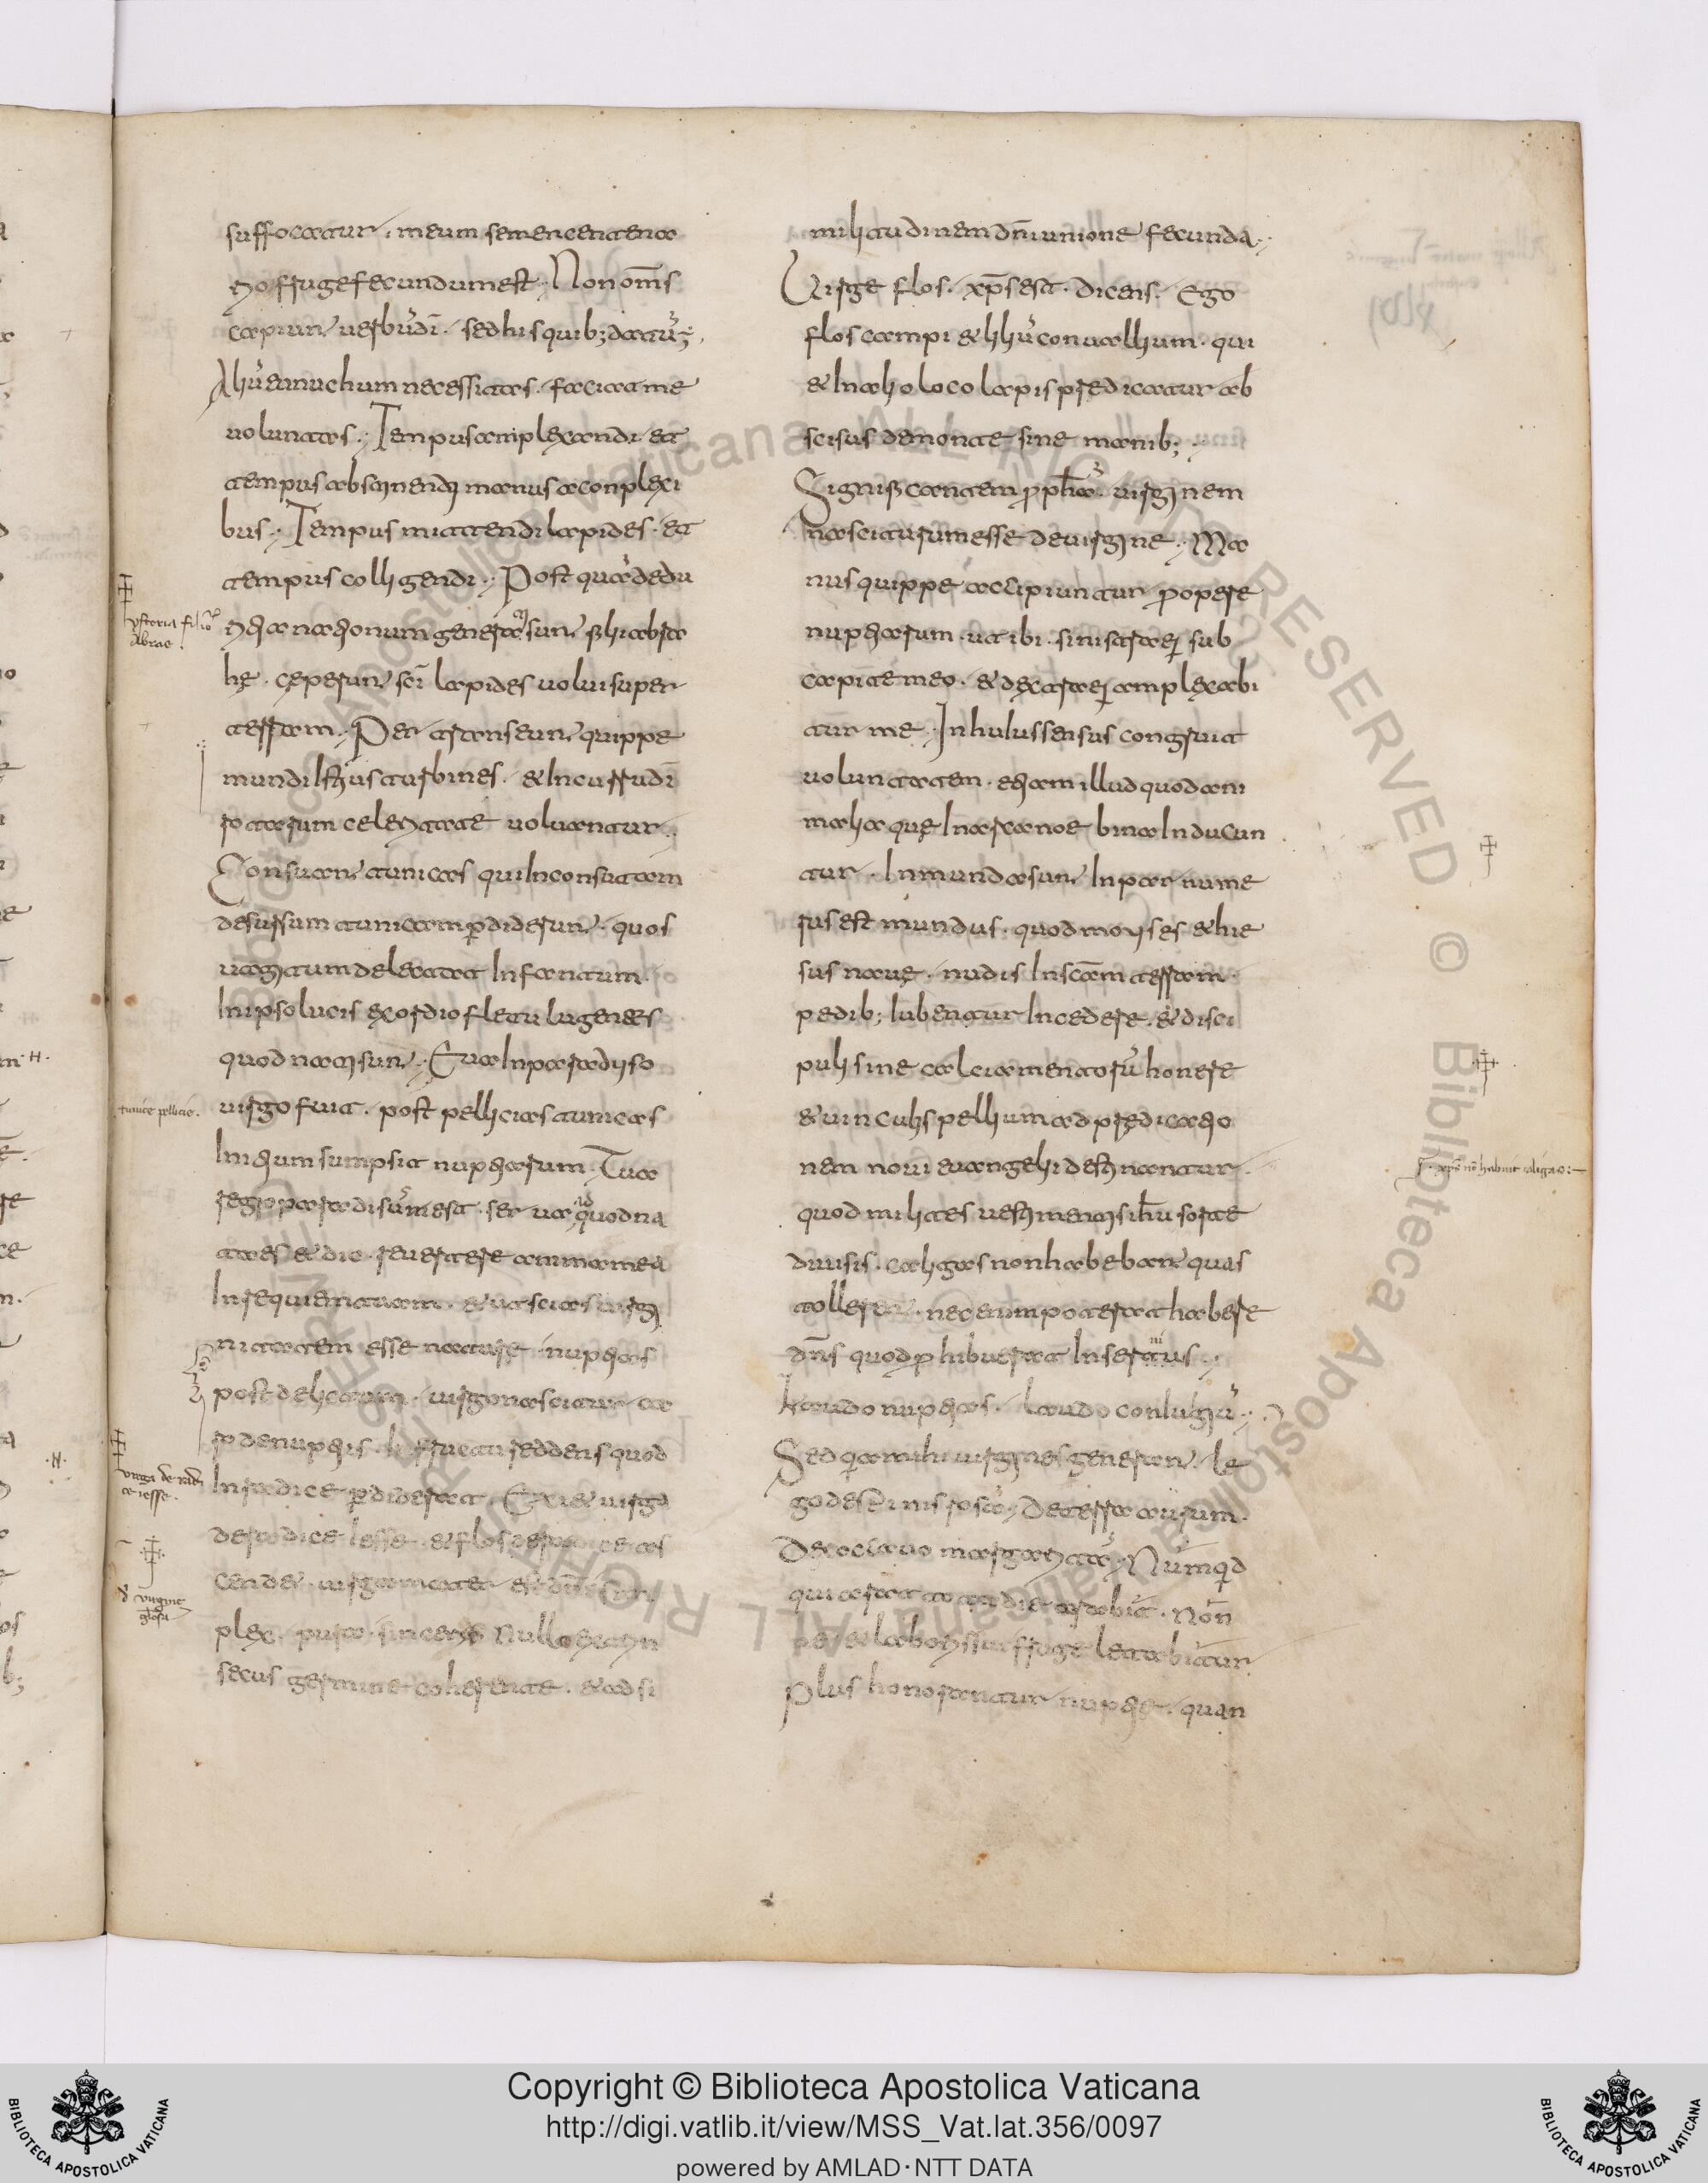 suffocatur. meum semen centena
ria fruge fecundum est. Non om̄s
capiunt uerbū dī. sed his quib; datū ē.
Aliū eunuchum necessitas. faciat me
uoluntas. Tempus amplexandi. et
tempus abstinendi manus a conplexi
bus. Tempus mittendi lapides. et
tempus colligendi. Post quā de du
ritia nationum generati sunt filii abra
hę. cęperunt sc̄i lapides uolui super
terram. Per transeunt quippe
mundi istius turbines. & In curru dī
rotarum celeritate uoluantur.
Consuant tunicas qui Inconsutam
desursum tunicam p̄diderunt. quos
uagitum delectat Infantum.
In ipso lucis exordio fletu lugentes
quod nati sunt. Eua In paradiso
uirgo fuit. post pellicias tunicas
Initium sumpsit nuptiarum. Tua
regio paradisus est. serua quod na
ta es & dic. reuertere anima mea
In requiem tuam. & ut scias uirgi
nitatem esse naturę. nuptias
post delictum. uirgo nascitur ca
ro de nuptiis. In fructu reddens quod
In radice p̄diderat. Exiet uirga
de radice Iesse. & flos de radice as
cendet. uirga mater est dn̄i sim
plex. pura. sinceris nullo extrin
secus germine coherente. & ad si
militudinem dn̄i unione fecunda.
Uirgę flos. xp̄s est. dicens. Ego
flos campi & liliū conuallium. qui
& In alio loco lapis prędicatur ab
scisus de monte sine manib;.
Significantem ꝓph̄a. uirginem
nasciturum esse de uirgine. Ma
nus quippe accipiuntur ꝓ opere
nuptiarum. ut ibi. sinistra ei; sub
capite meo. & dextra ei; amplexabi
tur me. In huIus sensus congruit
uoluntatem. etiam illud quod ani
malia que In arca noe bina Inducun
tur. Inmunda sunt Inpar nume
rus est mundus. quod moyses & hie
sus naue. nudis In sc̄am terram
pedib; Iubentur Incedere. & disci
puli sine calciamentorū honere
& uinculis pellium ad prędicatio
nem noui euangelii destinantur.
quod milites uestimentis ih̄u sorte
diuisis. caligas non habebant quas
tollerent. nec enim poterat habere
dn̄s quod ꝓhibuerat In seruis.
Laudo nuptias. laudo conIugiū.
Sed quia mihi uirgines generant. le
go de spinis rosā. De terra aurum.
De coclea margaritā. Nūmq̄d
qui arat tota die arabit. Nōn
ne & laboris sui fruge lętabitur.
Plus honorantur nuptię. quan
tunice pellicie.
uirga de radi
ce iesse.
d uirgine
xp̄s n̄ habuit caligas